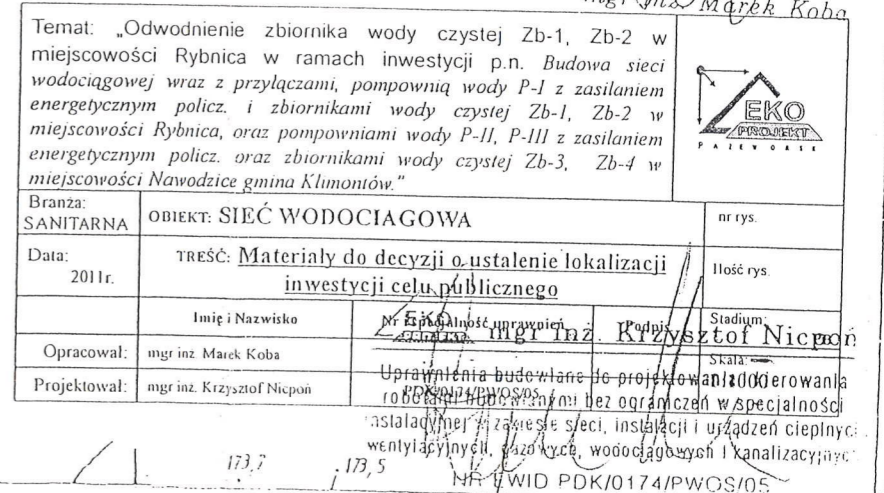 mgr inż. Marek Koba
Temat: „Odwodnienie zbiornika wody czystej Zb-1, Zb-2 w
miejscowości Rybnica w ramach inwestycji p.n. Budowa sieci
wodociągowej wraz z przyłączami, pompownią wody P-I z zasilaniem
energetycznym policz. i zbiornikami wody czystej Zb-1, Zb-2 w
miejscowości Rybnica, oraz pompowniami wody P-II, P-III z zasilaniem
energetycznym policz. oraz zbiornikami wody czystej Zb-3, Zb-4 w
miejscowości Nawodzice gmina Klimontów."
EKO
PROJEKT
PRZEWORSK
Branża:
SANITARNA
OBIEKT: SIEĆ WODOCIAGOWA
nr rys.
Data:
2011r.
TREŚĆ: Materiały do decyzji o ustalenie lokalizacji
inwestycji celu publicznego
Ilość rys.
Imię i Nazwisko
Nr i specjalność uprawnień
Podpis
Stadium:
EKO
mgr inż. Krzysztof Nicpoń
Opracował:
mgr inż. Marek Koba
Skala:
Projektował:
mgr inż. Krzysztof Nicpoń
PDK/0174/PWOS/05
Uprawnienia budowlane do projektowania i kierowania
robotami budowlanymi bez ograniczeń w specjalności
instalacyjnej w zakresie sieci, instalacji i urządzeń cieplnyc
wentylacyjnych, gazowych, wodociągowych i kanalizacyjnyc
NR EWID PDK/0174/PWOS/05
173,7
173,5